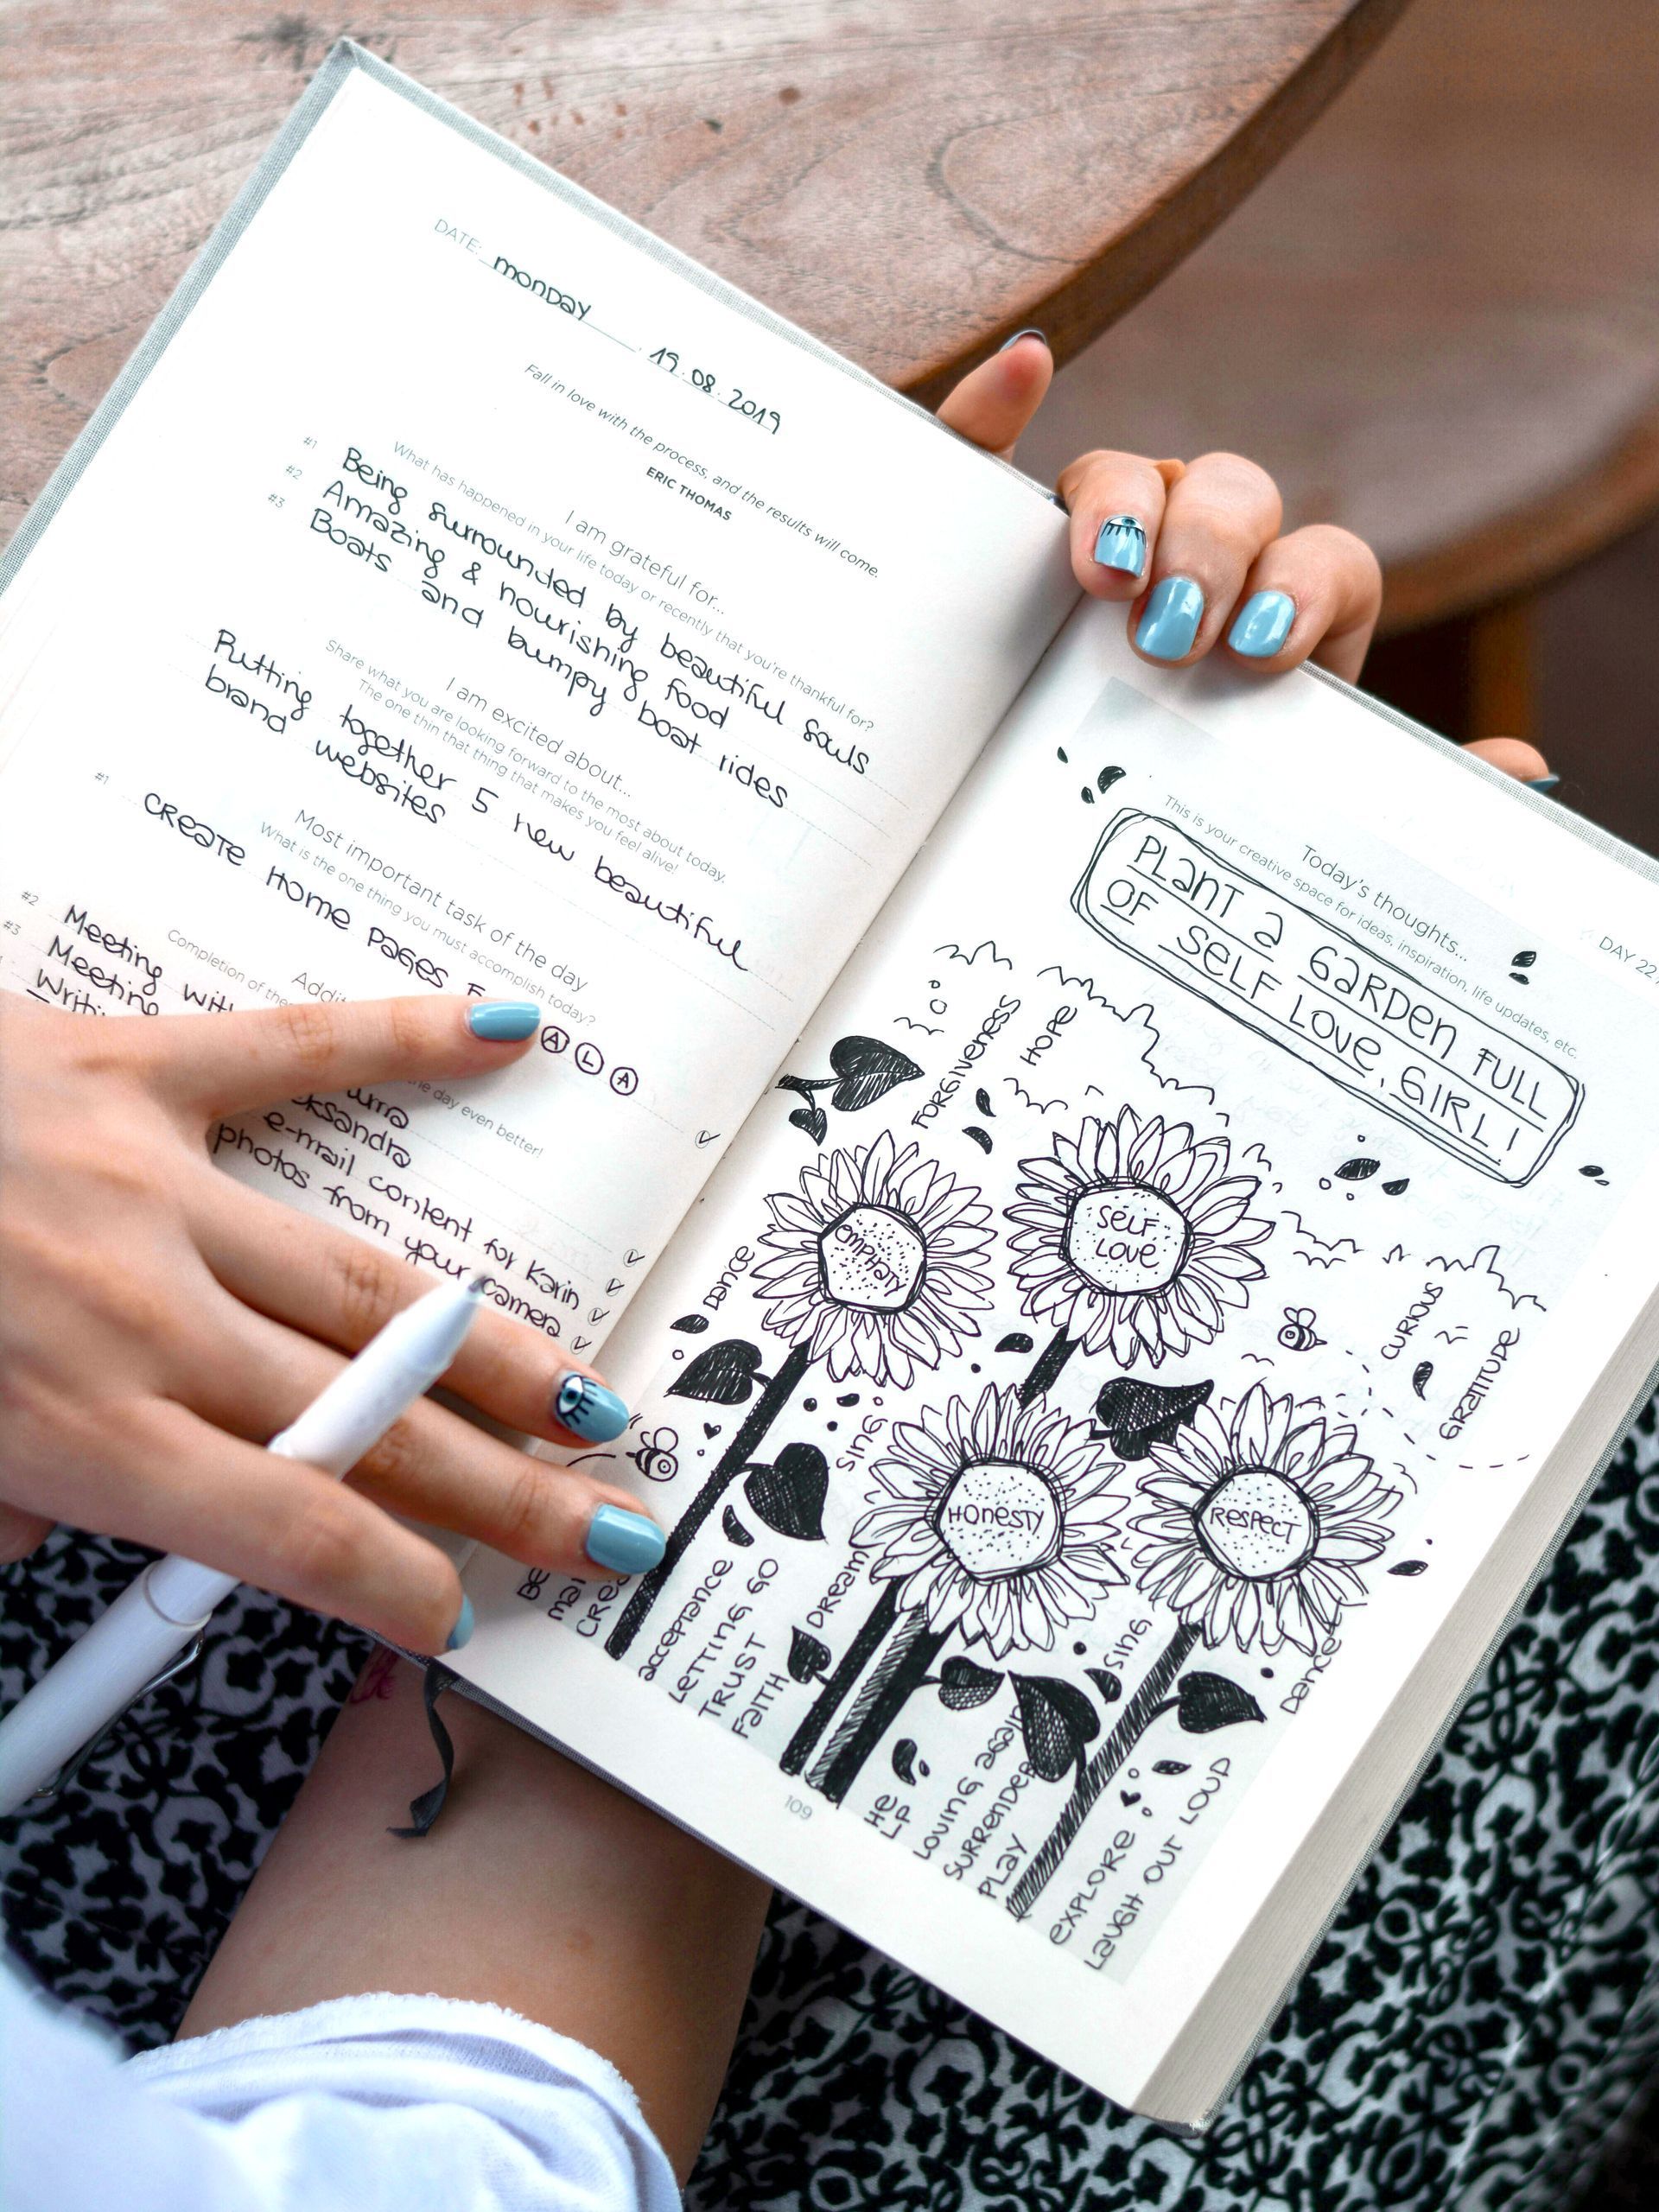 DATE: monday 19.08.2019
Fall in love with the process, and the results will come.
ERIC THOMAS
I am grateful for...
What has happened in your life today or recently that you're thankful for?
#1 Being surrounded by beautiful souls
#2 Amazing & nourishing food
#3 Boats and bumpy boat rides
I am excited about...
Share what you are looking forward to the most about today.
The one thin that thing that makes you feel alive!
Putting together 5 new beautiful
brand websites
Most important task of the day
What is the one thing you must accomplish today?
#1 CREATE HOME PAGES A L A
Completion of
the day even better!
#2 Meeting
#3 Meeting
e-mail content for Karin
photos from your camera
DAY 22
Today's thoughts...
This is your creative space for ideas, inspiration, life updates, etc.
PLANT A GARDEN FULL
OF SELF LOVE, GIRL!
FORGIVENESS
HOPE
EMPHATY
SELF
LOVE
DANCE
CURIOUS
GRATITUDE
SING
HONESTY
RESPECT
ACCEPTANCE
LETTING GO
TRUST
FAITH
DREAM
SING
DANCE
HE
LP
LOVING AGAIN
SURRENDER
PLAY
EXPLORE
LAUGH OUT LOUD
109